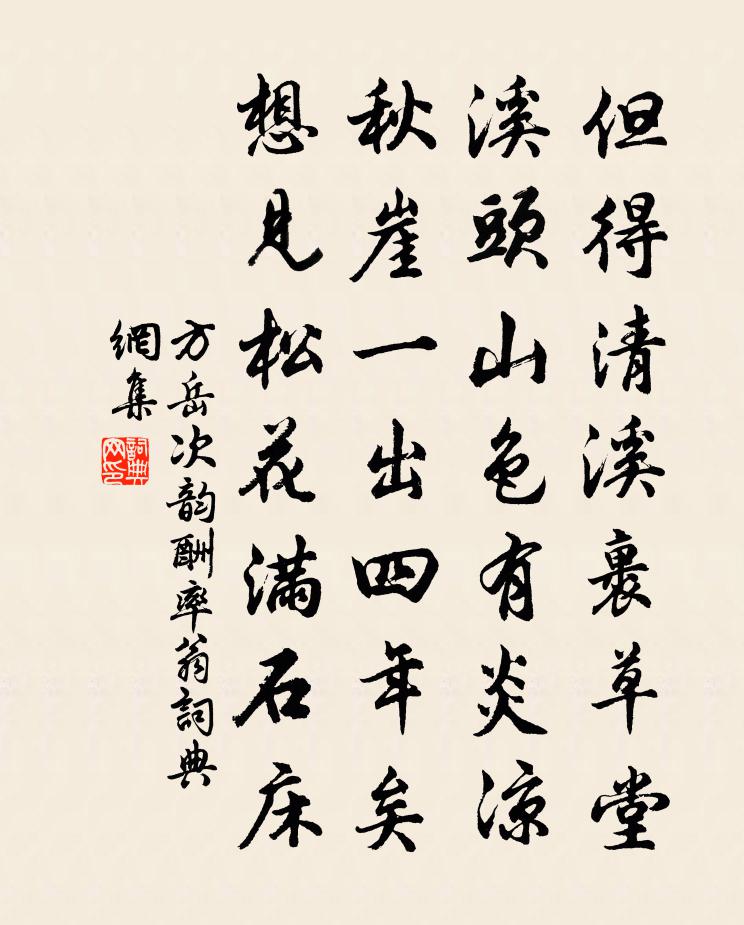 但得清溪裹草堂
溪頭山色有炎涼
秋崖一出四年矣
想見松花滿石床
方岳次韵酬率翁詞典
網集
詞典
网印